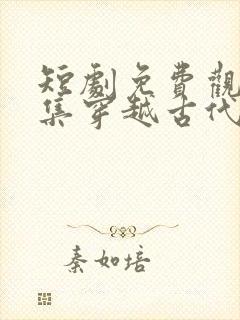 短劇免費觀
集穿越古代
秦如培